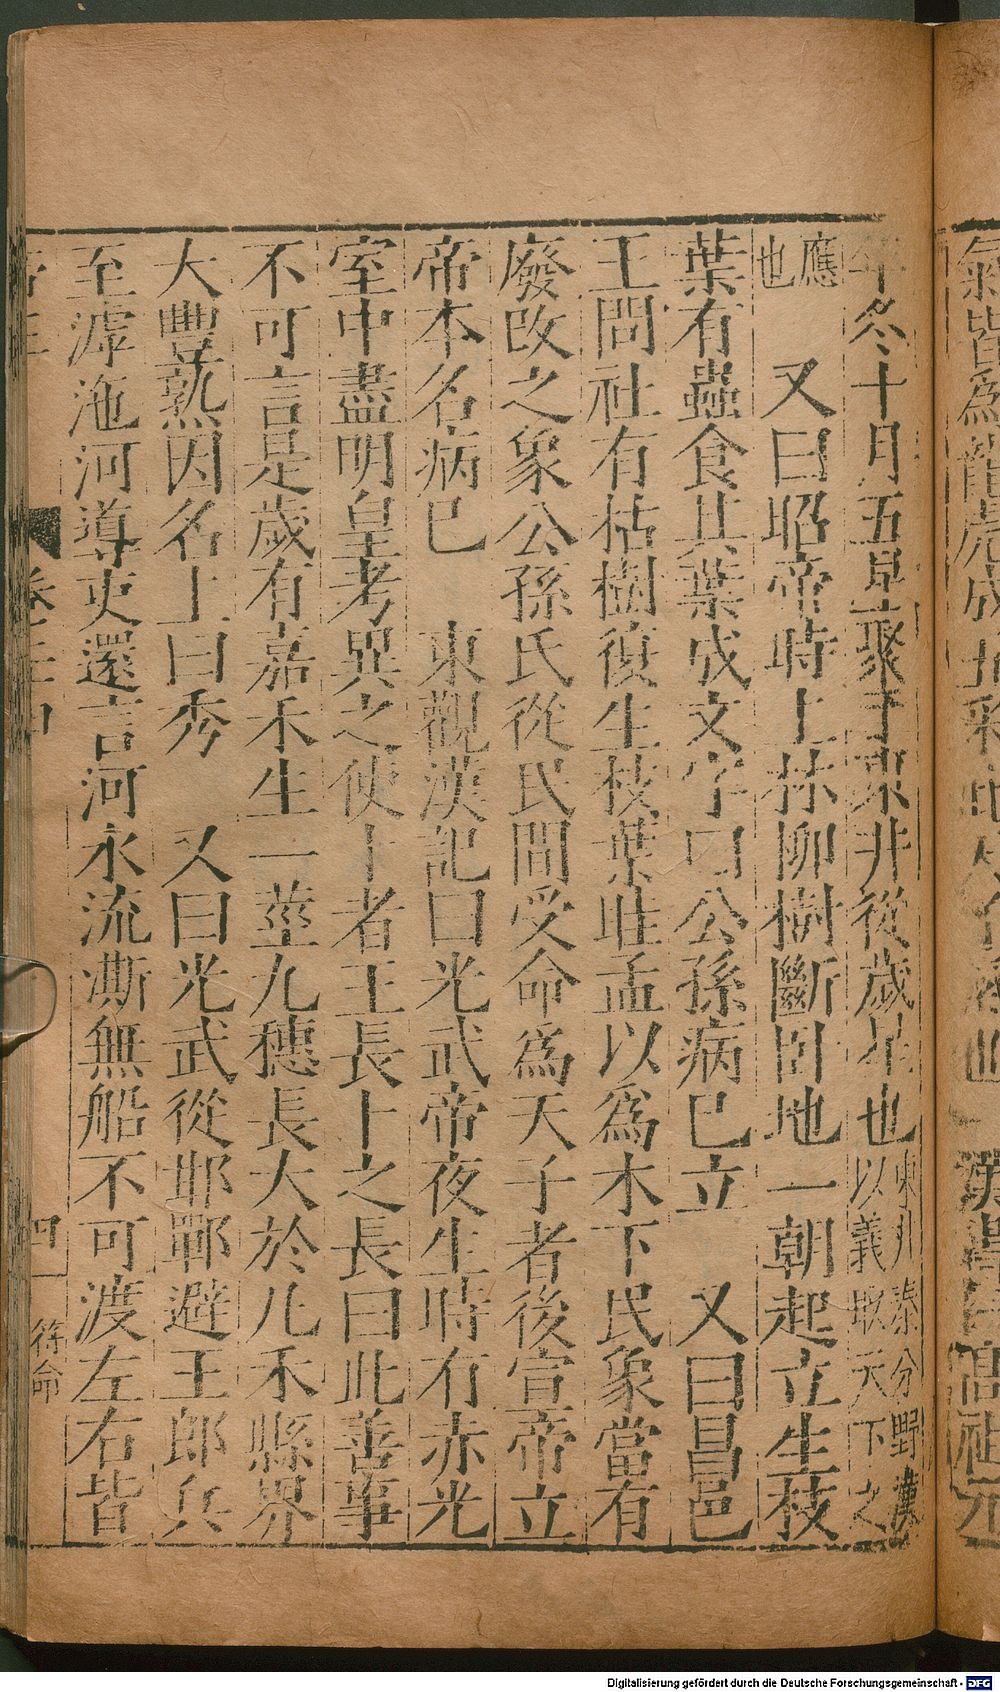 氣皆爲龍虎成五彩此天子氣也 漢書曰高祖元
年冬十月五星聚于東井從歲星也東井秦分野漢
以義取天下之
應
也 又曰昭帝時上林柳樹斷卧地一朝起立生枝
葉有蟲食其葉成文字曰公孫病已立 又曰昌邑
王問社有枯樹復生枝葉眭孟以爲木下民象當有
廢改之象公孫氏從民間受命爲天子者後宣帝立
帝本名病已 東觀漢記曰光武帝夜生時有赤光
室中盡明皇考異之使卜者王長卜之長曰此善事
不可言是歲有嘉禾生一莖九穗長大於凡禾縣界
大豐熟因名上曰秀 又曰光武從邯鄲避王郎兵
至滹沲河導吏還言河水流澌無船不可渡左右皆
卷
四
符命
Digitalisierung gefördert durch die Deutsche Forschungsgemeinschaft - DFG